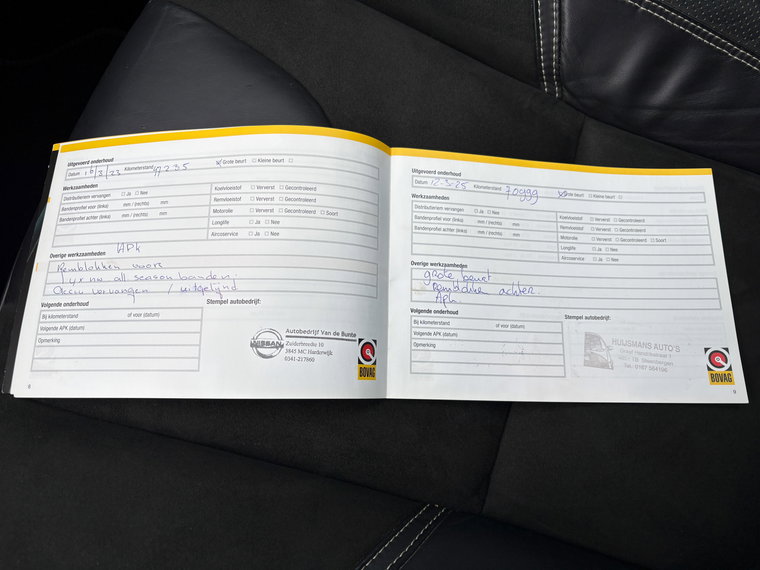 Uitgevoerd onderhoud
Datum 16/3/23 Kilometerstand 47235 Grote beurt Kleine beurt
Werkzaamheden
Distributieriem vervangen Ja Nee
Bandenprofiel voor (links) mm / (rechts) mm
Bandenprofiel achter (links) mm / (rechts) mm
Koelvloeistof Ververst Gecontroleerd
Remvloeistof Ververst Gecontroleerd
Motorolie Ververst Gecontroleerd Soort
Longlife Ja Nee
Aircoservice Ja Nee
Overige werkzaamheden APk
Remblokken voor
4x nw all season banden
Accu vervangen / uitgelijnd
Volgende onderhoud
Bij kilometerstand of voor (datum)
Volgende APK (datum)
Opmerking
Stempel autobedrijf:
NISSAN
Autobedrijf Van de Bunte
Zuiderbreedte 10
3845 MC Harderwijk
0341-217860
BOVAG
8
Uitgevoerd onderhoud
Datum 12-3-25 Kilometerstand 70999 Grote beurt Kleine beurt
Werkzaamheden
Distributieriem vervangen Ja Nee
Bandenprofiel voor (links) mm / (rechts) mm
Bandenprofiel achter (links) mm / (rechts) mm
Koelvloeistof Ververst Gecontroleerd
Remvloeistof Ververst Gecontroleerd
Motorolie Ververst Gecontroleerd Soort
Longlife Ja Nee
Aircoservice Ja Nee
Overige werkzaamheden
grote beurt
Remblokken achter.
Apk.
Volgende onderhoud
Bij kilometerstand of voor (datum)
Volgende APK (datum)
Opmerking
Stempel autobedrijf:
HUIJSMANS AUTO'S
Graaf Hendrikstraat 1
TB Steenbergen
Tel. 0167 564196
BOVAG
9